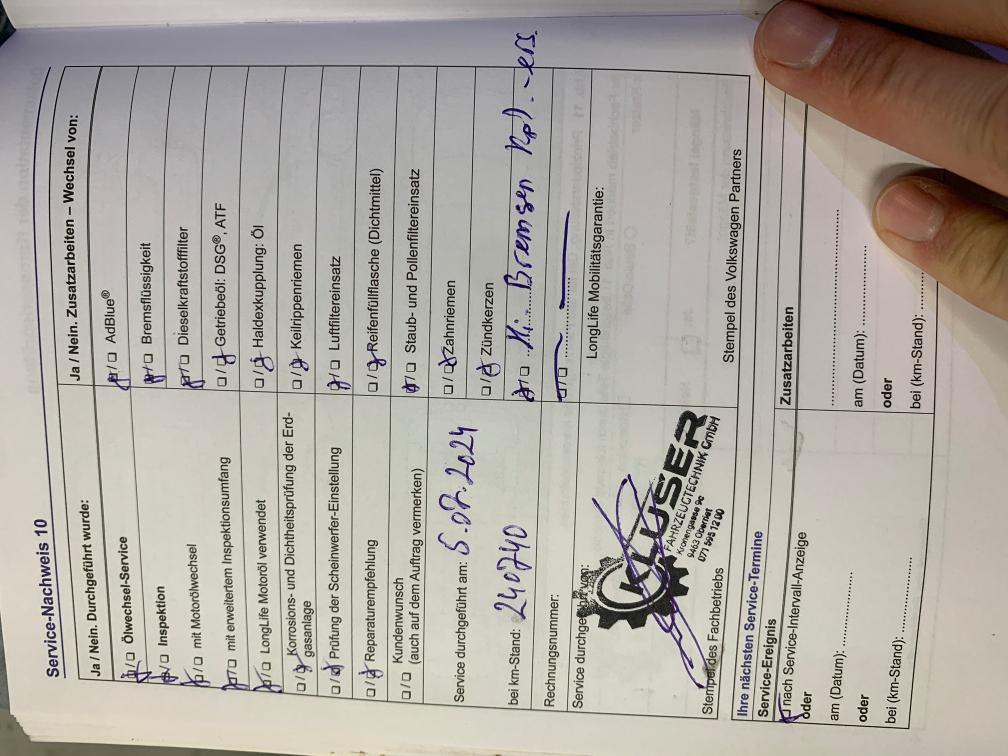 Service-Nachweis 10
Ja / Nein. Durchgeführt wurde:
Ölwechsel-Service
Inspektion
mit Motorölwechsel
mit erweitertem Inspektionsumfang
LongLife Motoröl verwendet
Korrosions- und Dichtheitsprüfung der Erd-
gasanlage
Prüfung der Scheinwerfer-Einstellung
Reparaturempfehlung
Kundenwunsch
(auch auf dem Auftrag vermerken)
Service durchgeführt am: 5.07.2024
bei km-Stand: 240740
Rechnungsnummer:
Service durchgeführt von:
KLUSER
FAHRZEUGTECHNIK GmbH
Kronengasse 9c
9463 Oberriet
071 595 12 00
Stempel des Fachbetriebs
Ja / Nein. Zusatzarbeiten – Wechsel von:
AdBlue®
Bremsflüssigkeit
Dieselkraftstofffilter
Getriebeöl: DSG®, ATF
Haldexkupplung: Öl
Keilrippenriemen
Luftfiltereinsatz
Reifenfüllflasche (Dichtmittel)
Staub- und Pollenfiltereinsatz
Zahnriemen
Zündkerzen
Hi. Bremsen kpl. -ers.
LongLife Mobilitätsgarantie:
Stempel des Volkswagen Partners
Ihre nächsten Service-Termine
Service-Ereignis
nach Service-Intervall-Anzeige
oder
am (Datum): ....................
oder
bei (km-Stand): ....................
Zusatzarbeiten
am (Datum): ....................
oder
bei (km-Stand):